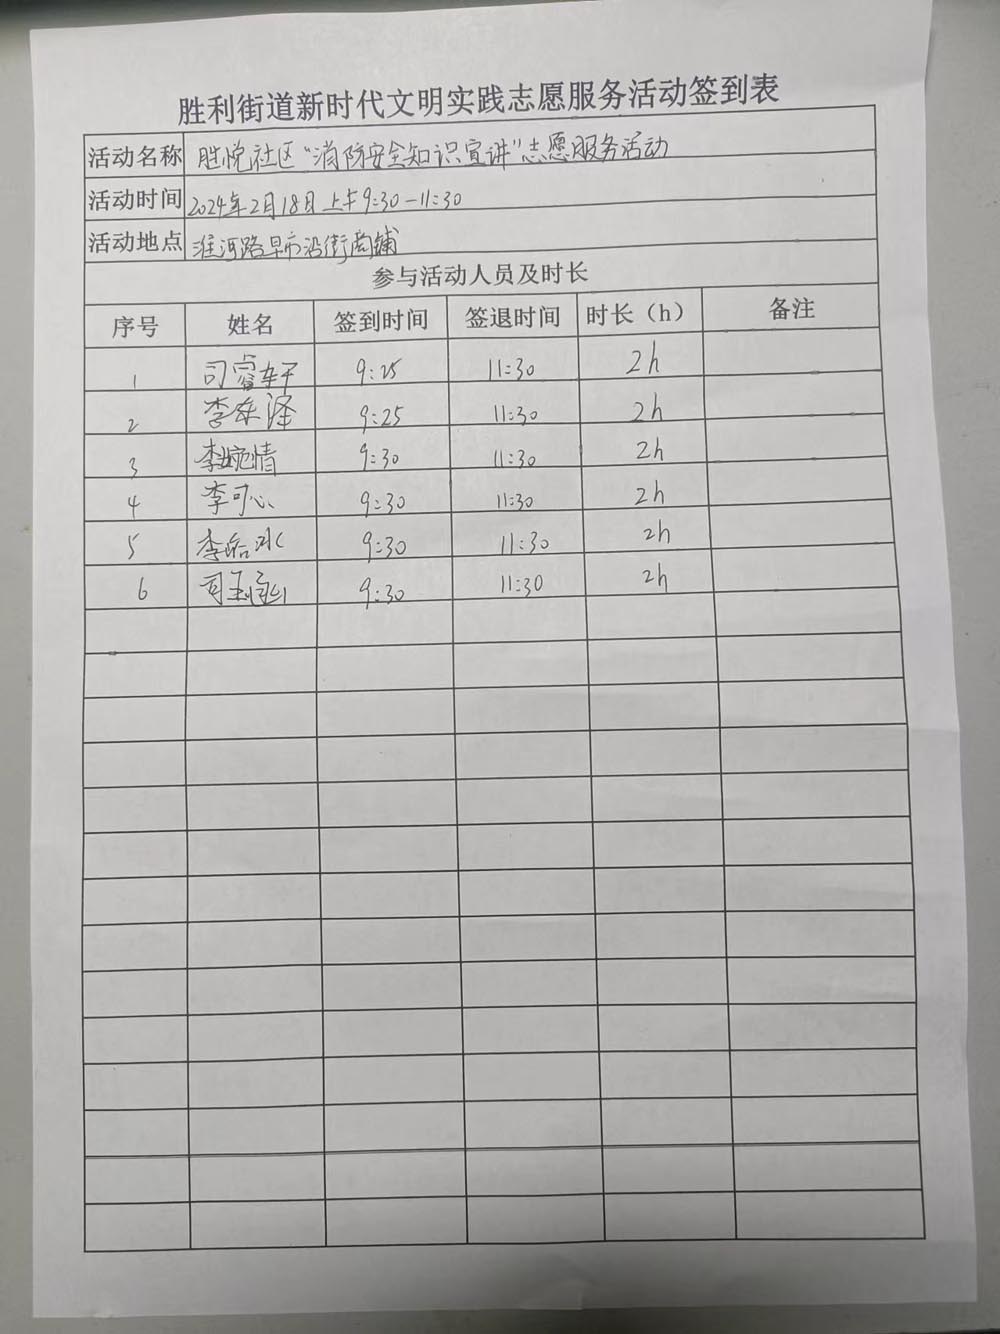 胜利街道新时代文明实践志愿服务活动签到表
活动名称 胜悦社区“消防安全知识宣讲”志愿服务活动
活动时间 2024年2月18日上午9:30-11:30
活动地点 淮河路早市沿街商铺
参与活动人员及时长
序号 姓名 签到时间 签退时间 时长（h） 备注
1 司睿轩 9:25 11:30 2h
2 李东泽 9:25 11:30 2h
3 李婉情 9:30 11:30 2h
4 李可心 9:30 11:30 2h
5 李冰 9:30 11:30 2h
6 司 9:30 11:30 2h